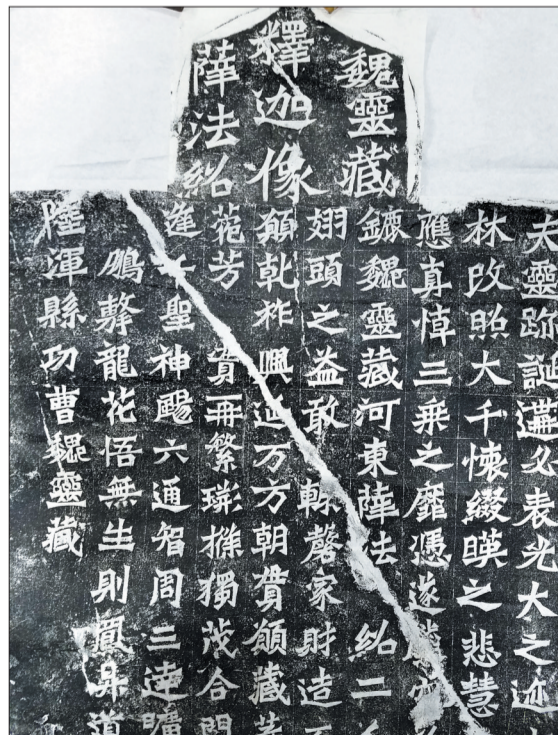 魏靈藏
釋迦像
薛法紹
夫靈跡誕遘必表光大之迹
林改照大千懷綴暎之悲慧
應真悼三乘之靡憑遂騰空
鏕魏靈藏河東薛法紹二
翅頭之益敢輒罄家財造石
願乾祚興延万方朝貫願藏等
菀芳實再繁荊條獨茂合門
逢千聖神颺六通智周三達曠
鵬擊龍花悟無生則鳳昇道
陸渾縣功曹魏靈藏